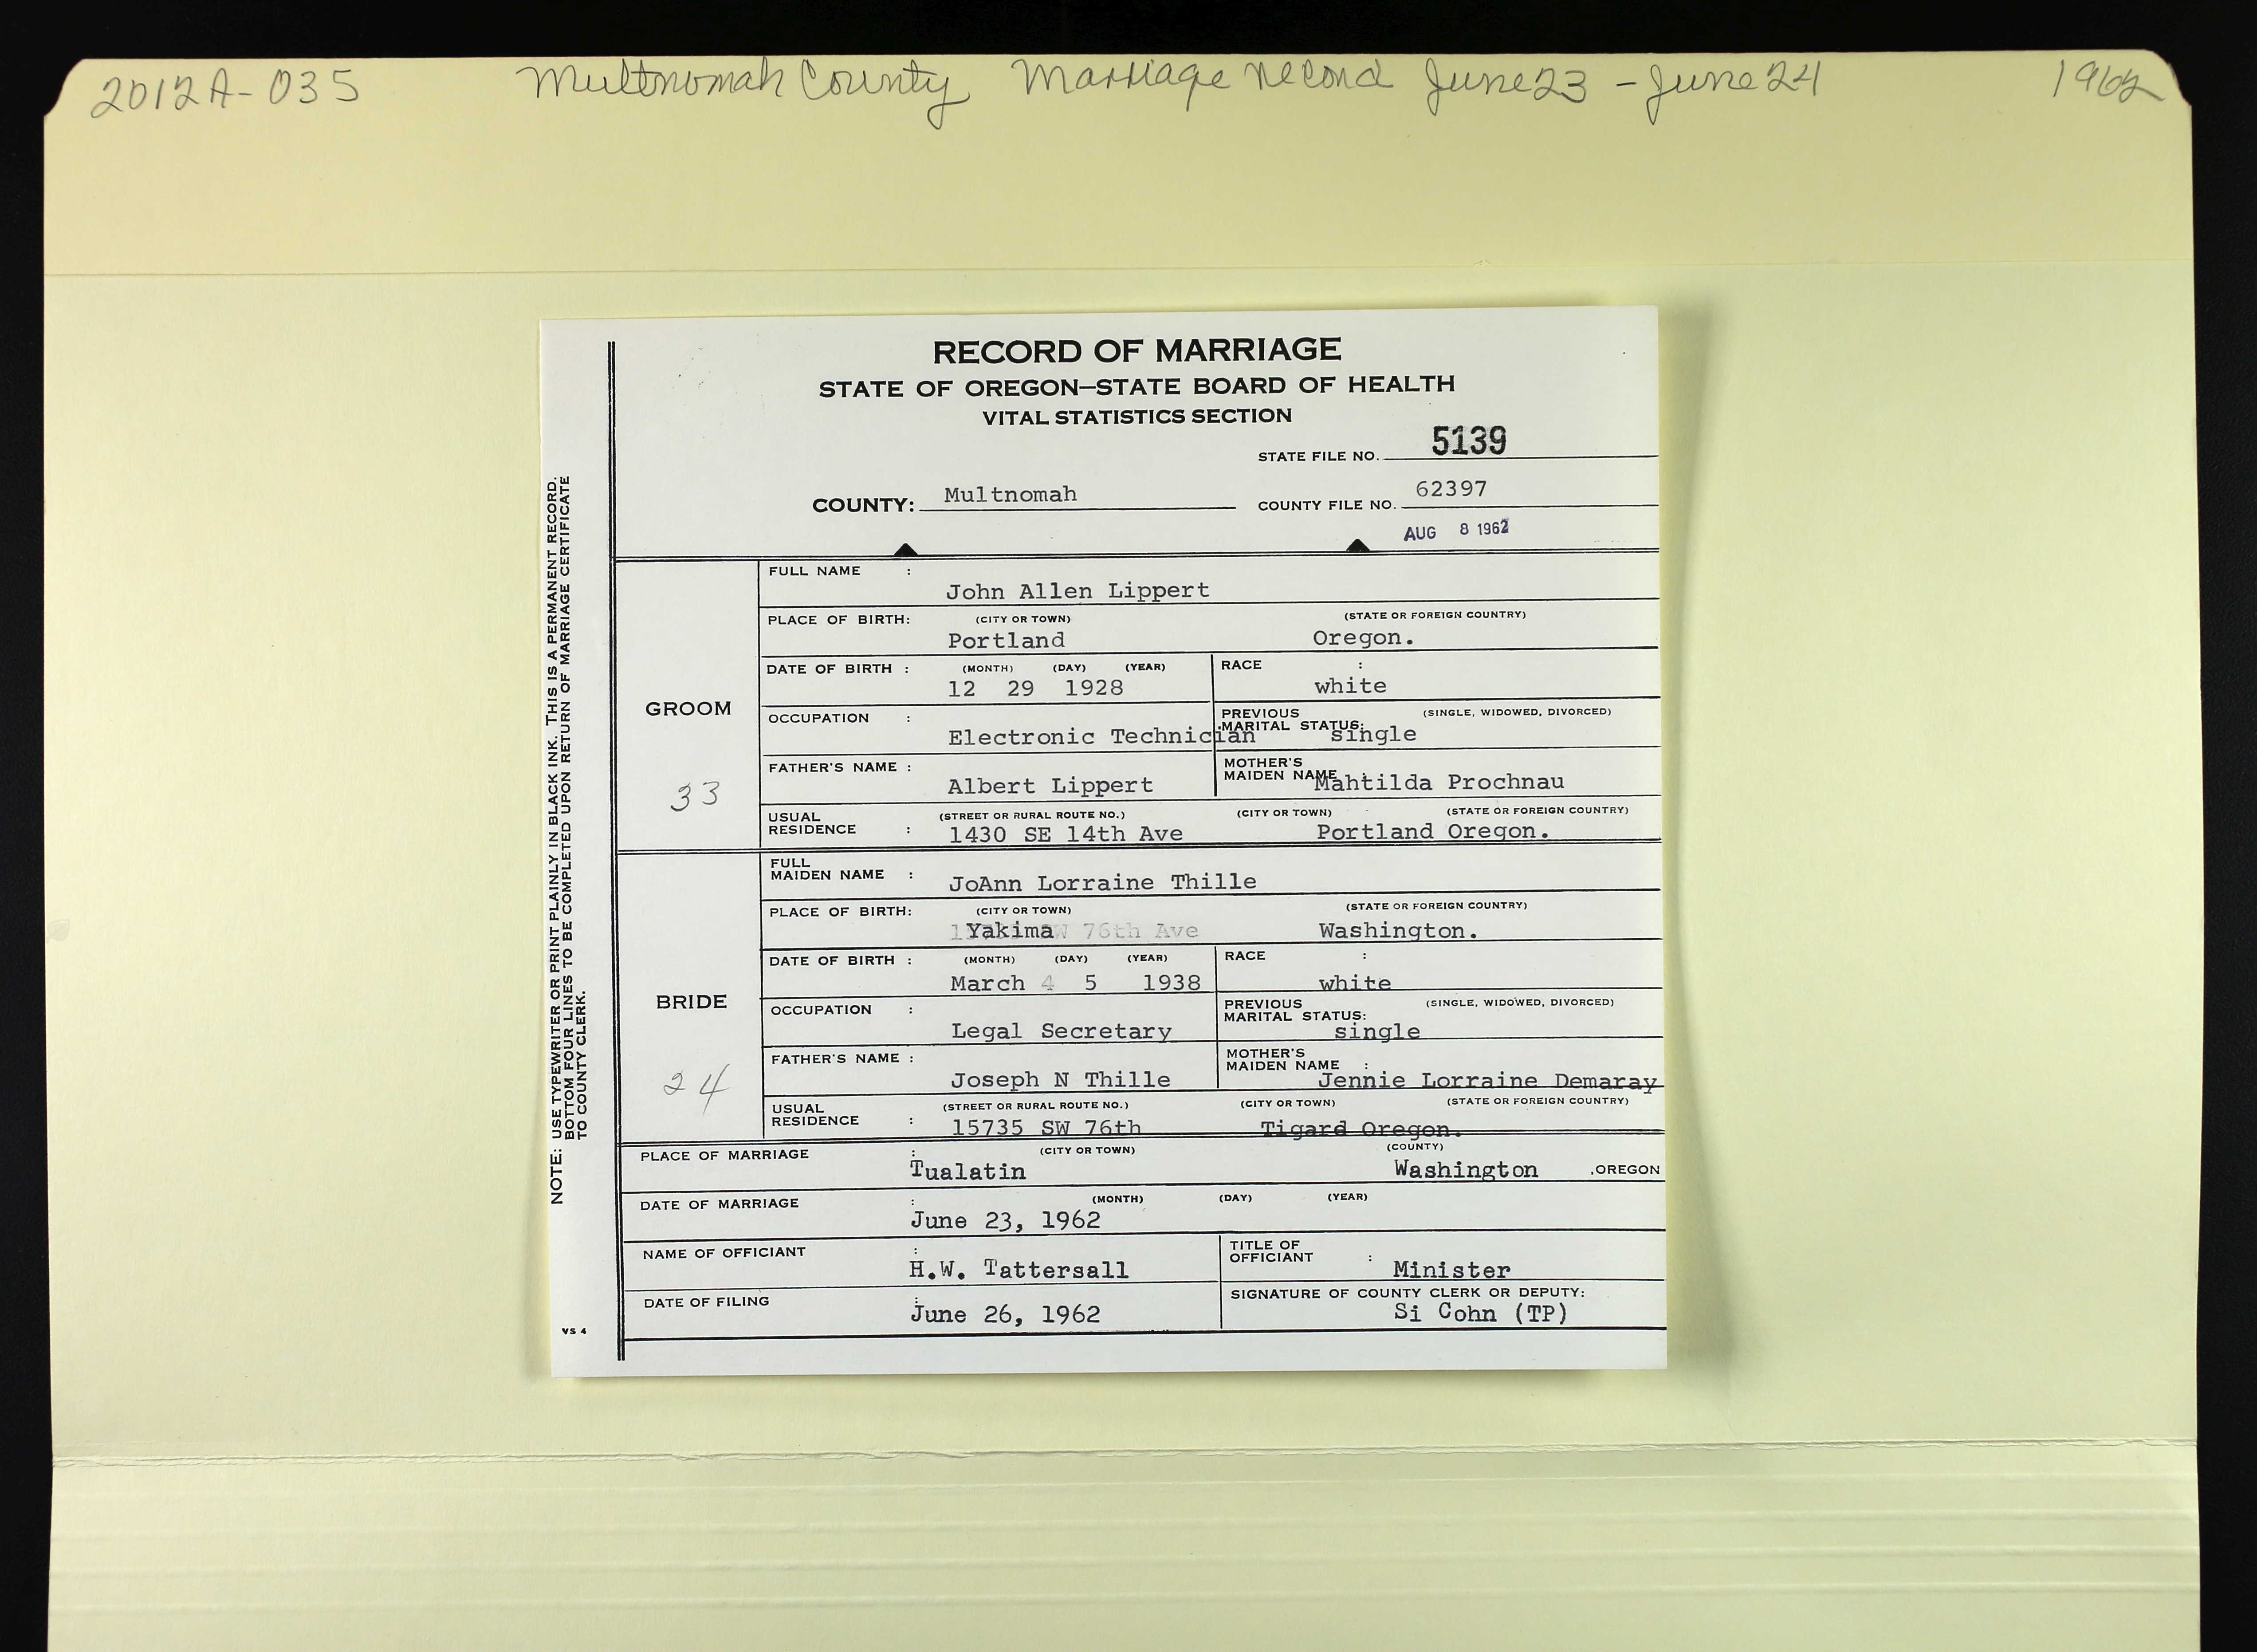 2012A-035 Multnomah County Marriage Record June 23 - June 24 1962
RECORD OF MARRIAGE
STATE OF OREGON—STATE BOARD OF HEALTH
VITAL STATISTICS SECTION
STATE FILE NO. 5139
COUNTY: Multnomah COUNTY FILE NO. 62397
AUG 8 1962
NOTE: USE TYPEWRITER OR PRINT PLAINLY IN BLACK INK. THIS IS A PERMANENT RECORD.
BOTTOM FOUR LINES TO BE COMPLETED UPON RETURN OF MARRIAGE CERTIFICATE
TO COUNTY CLERK.
GROOM
33
FULL NAME :
John Allen Lippert
PLACE OF BIRTH: (CITY OR TOWN) (STATE OR FOREIGN COUNTRY)
Portland Oregon.
DATE OF BIRTH : (MONTH) (DAY) (YEAR) RACE :
12 29 1928 white
OCCUPATION : PREVIOUS (SINGLE, WIDOWED, DIVORCED)
MARITAL STATUS:
Electronic Technician single
FATHER'S NAME : MOTHER'S
MAIDEN NAME :
Albert Lippert Mahtilda Prochnau
USUAL (STREET OR RURAL ROUTE NO.) (CITY OR TOWN) (STATE OR FOREIGN COUNTRY)
RESIDENCE : 1430 SE 14th Ave Portland Oregon.
BRIDE
24
FULL
MAIDEN NAME :
JoAnn Lorraine Thille
PLACE OF BIRTH: (CITY OR TOWN) (STATE OR FOREIGN COUNTRY)
Yakima W 76th Ave Washington.
DATE OF BIRTH : (MONTH) (DAY) (YEAR) RACE :
March 4 5 1938 white
OCCUPATION : PREVIOUS (SINGLE, WIDOWED, DIVORCED)
MARITAL STATUS:
Legal Secretary single
FATHER'S NAME : MOTHER'S
MAIDEN NAME :
Joseph N Thille Jennie Lorraine Demaray
USUAL (STREET OR RURAL ROUTE NO.) (CITY OR TOWN) (STATE OR FOREIGN COUNTRY)
RESIDENCE : 15735 SW 76th Tigard Oregon.
PLACE OF MARRIAGE : (CITY OR TOWN) (COUNTY)
Tualatin Washington ,OREGON
DATE OF MARRIAGE : (MONTH) (DAY) (YEAR)
June 23, 1962
NAME OF OFFICIANT : TITLE OF
OFFICIANT :
H.W. Tattersall Minister
DATE OF FILING : SIGNATURE OF COUNTY CLERK OR DEPUTY:
June 26, 1962 Si Cohn (TP)
VS 4